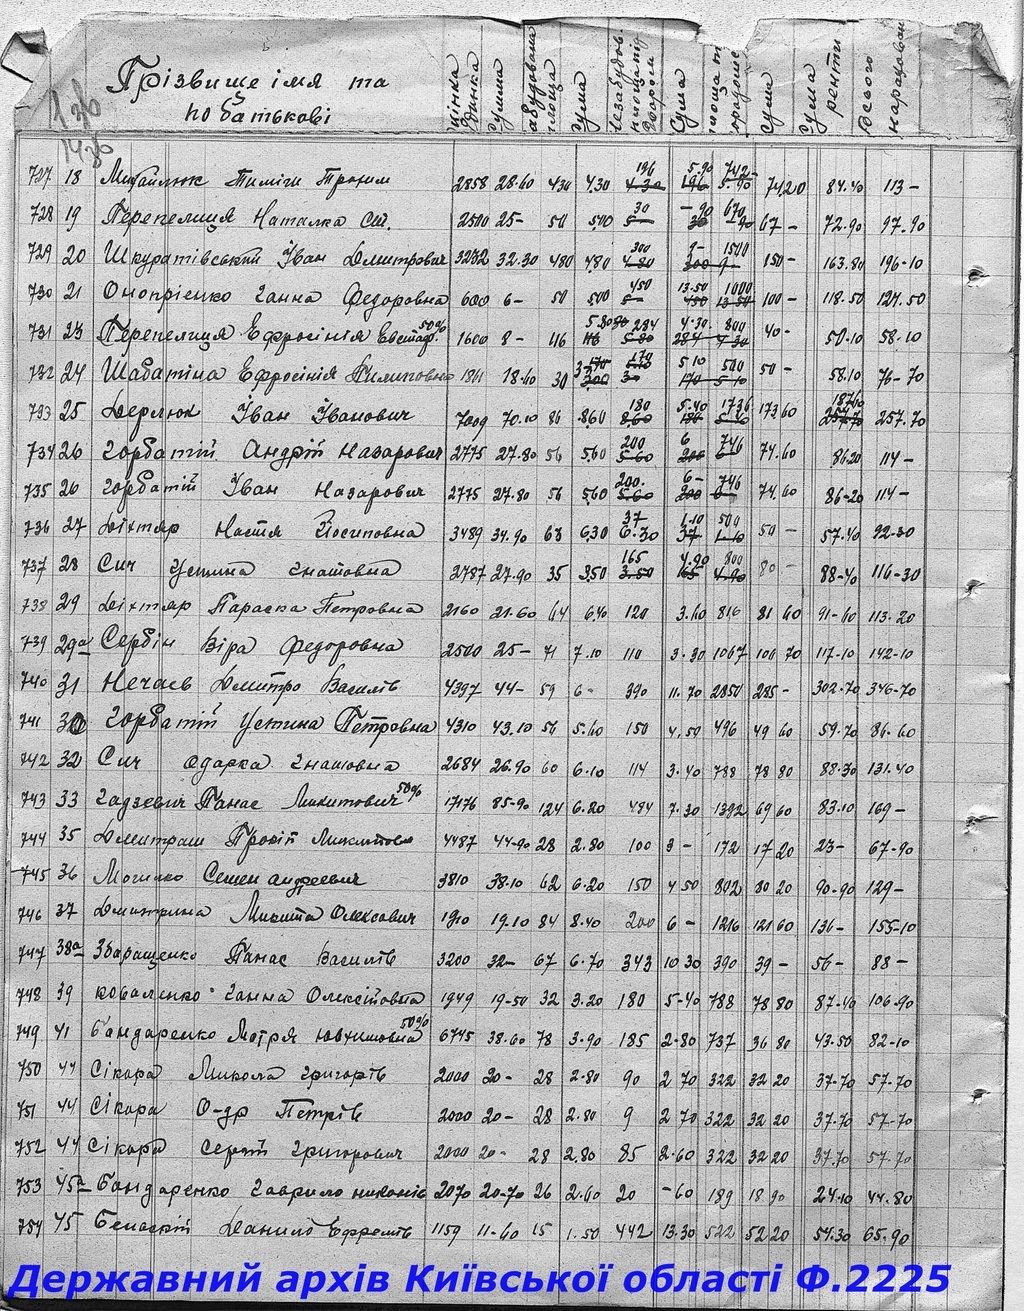 Прізвище імя та
по батькові
цінка
динка
сумма
абудована
площа
сума
Незабудов.
площа під
двором
Сума
площа п
ородом
сума
сума
ренти
Всього
нарахован
1 зв
727 18 Тиміш 2858 28.60 430 4.30 196 5.90 742- 74,20 84.40 113-
728 19 Перепелиця Наталка См. 2500 25- 50 500 30 -90 670 67- 72.90 97.90
729 20 Шкуратівський Іван Дмитрович 3232 32.30 480 480 300 9- 1500 150- 163.80 196-10
730 21 Онопрієнко Ганна Федоровна 600 6- 50 500 450 13.50 1000 100- 118.50 124.50
731 23 Перепелиця Ефросінія 50% 1600 8- 116 5.80 284 4.30 800 40- 50.10 58.10
732 24 Шабатіна Ефросінія Пилиповна 18.60 30 170 5.10 500 50- 58.10 76-70
733 25 Дерлюк Іван Іванович 7009 70.10 86 .860 180 5.40 1736 173.60 257.70
734 26 Горбатій Андрій Назарович 2775 27.80 56 5,60 200 6 746 74.60 86.20 114-
735 26 Горбатій Іван Назарович 2775 27.80 56 5,60 200. 6- 746 74.60 86-20 114-
736 27 Діхтяр Настя Йосиповна 3489 34.90 63 6,30 37 1.10 500 50- 57.40 92-30
737 28 Сич Устина Гнатовна 2787 27.90 35 3,50 165 4.90 800 80- 88-40 116-30
738 29 Діхтяр Параска Петровна 2160 21.60 64 6,40 120 3.60 816 81 60 91-60 113.20
739 29а Сербін Віра Федоровна 2500 25- 71 7.10 110 3.30 1067 106 70 117-10 142-10
740 31 Нечаєв Дмитро Василів 4397 44- 59 6- 390 11.70 2850 285- 302.70 346-70
741 30 Горбатій Устина Петровна 4310 43.10 56 5.60 150 4,50 496 49 60 59.70 86.60
742 32 Сич Одарка Гнатовна 2684 26.90 60 6.10 114 3.40 788 78 80 88.30 131.40
743 33 Гадзевич Панас Микитович 50% 17176 85-90 124 6.20 484 7.30 1392 69 60 83.10 169-
744 35 Дмитраш 4487 44-90 28 2.80 100 3- 172 17 20 23- 67-90
745 36 Могилко Семен андреевич 3810 38.10 62 6.20 150 4 50 802 80 20 90-90 129-
746 37 Микита Олексович 1910 19.10 84 8.40 200 6- 1216 121 60 136- 155-10
747 38а Збаращенко Панас Василів 3200 32- 67 6.70 343 10 30 390 39- 56- 88-
748 39 Коваленко Ганна Олексіївна 1949 19-50 32 3.20 180 5-40 788 78 80 87-40 106.90
749 41 Бандаренко Мотря Ювхимовна 50% 6745 38.60 78 3.90 185 2-80 737 36 80 43.50 82-10
750 44 Сікора Микола Григорів 2000 20- 28 2-80 90 2 70 322 32 20 37-70 57-70
751 44 Сікора О-др Петрів 2000 20- 28 2.80 9 2 70 322 32 20 37.70 57-70
752 44 Сікора Сергій Григорович 2000 20- 28 2,80 85 2-60 322 32 20 37.70 57-70
753 45а Бандаренко Гаврило 2070 20-70 26 2.60 20 -60 189 18 90 24.10 44.80
754 45 Данило Ефремів 1159 11-60 15 1.50 442 13.30 522 52 20 54.30 65.90
Державний архів Київської області Ф.2225